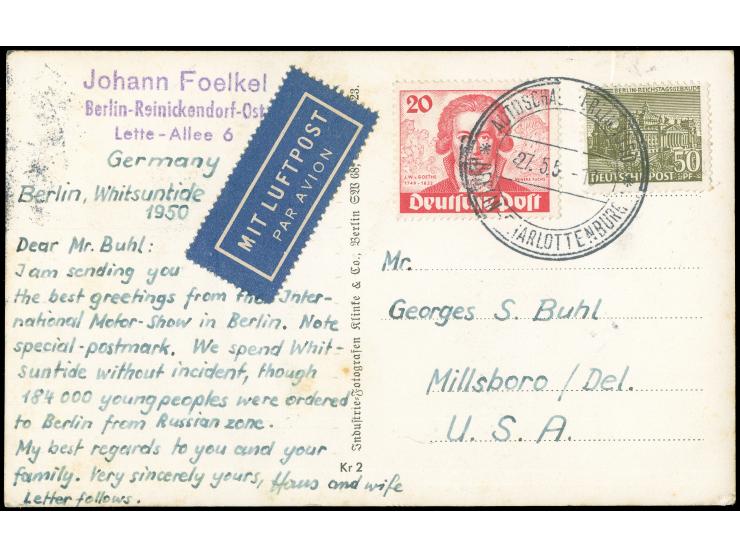 Johann Foelkel
Berlin-Reinickendorf-Ost
Lette-Allee 6
Germany
Berlin, Whitsuntide
1950
Dear Mr. Buhl:
I am sending you
the best greetings from the Inter-
national Motor-Show in Berlin. Note
special-postmark. We spend Whit-
suntide without incident, though
184 000 young peoples were ordered
to Berlin from Russian zone.
My best regards to you and your
family. Very sincerely yours, Hans and wife
Letter follows.
MIT LUFTPOST
PAR AVION
Industrie-Fotografen Klinke & Co., Berlin SW 68,
23.
Kr 2
20
J.W.v.GOETHE
1749-1832
REINEKE FUCHS
Deutsche Post
BERLIN-REICHSTAGSGEBÄUDE
50
DEUTSCHE POST
PF
AUTOSCHAU
27.5.5
CHARLOTTENBURG
Mr.
Georges S. Buhl
Millsboro / Del.
U. S. A.